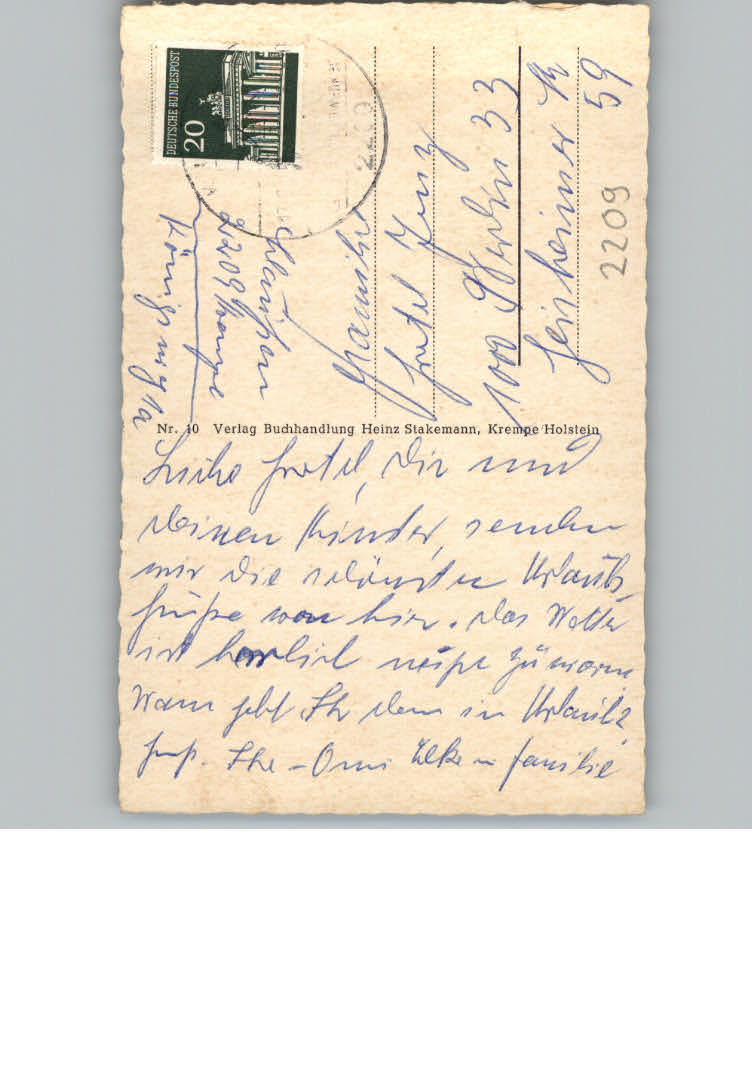 DEUTSCHE BUNDESPOST
20
2209
2209 Krempe
Königsweg 1a
Familie
Gretel Jung
1000 Berlin 33
59
2209
Nr. 10 Verlag Buchhandlung Heinz Stakemann, Krempe/Holstein
Liebe Gretel, Dir und
Deinen Kinder, senden
wir die schönsten Urlaubs,
grüße von hier. Das Wetter
ist herrlich nicht zu warm
Wann geht Ihr denn in Urlaub?
Elke u Familie